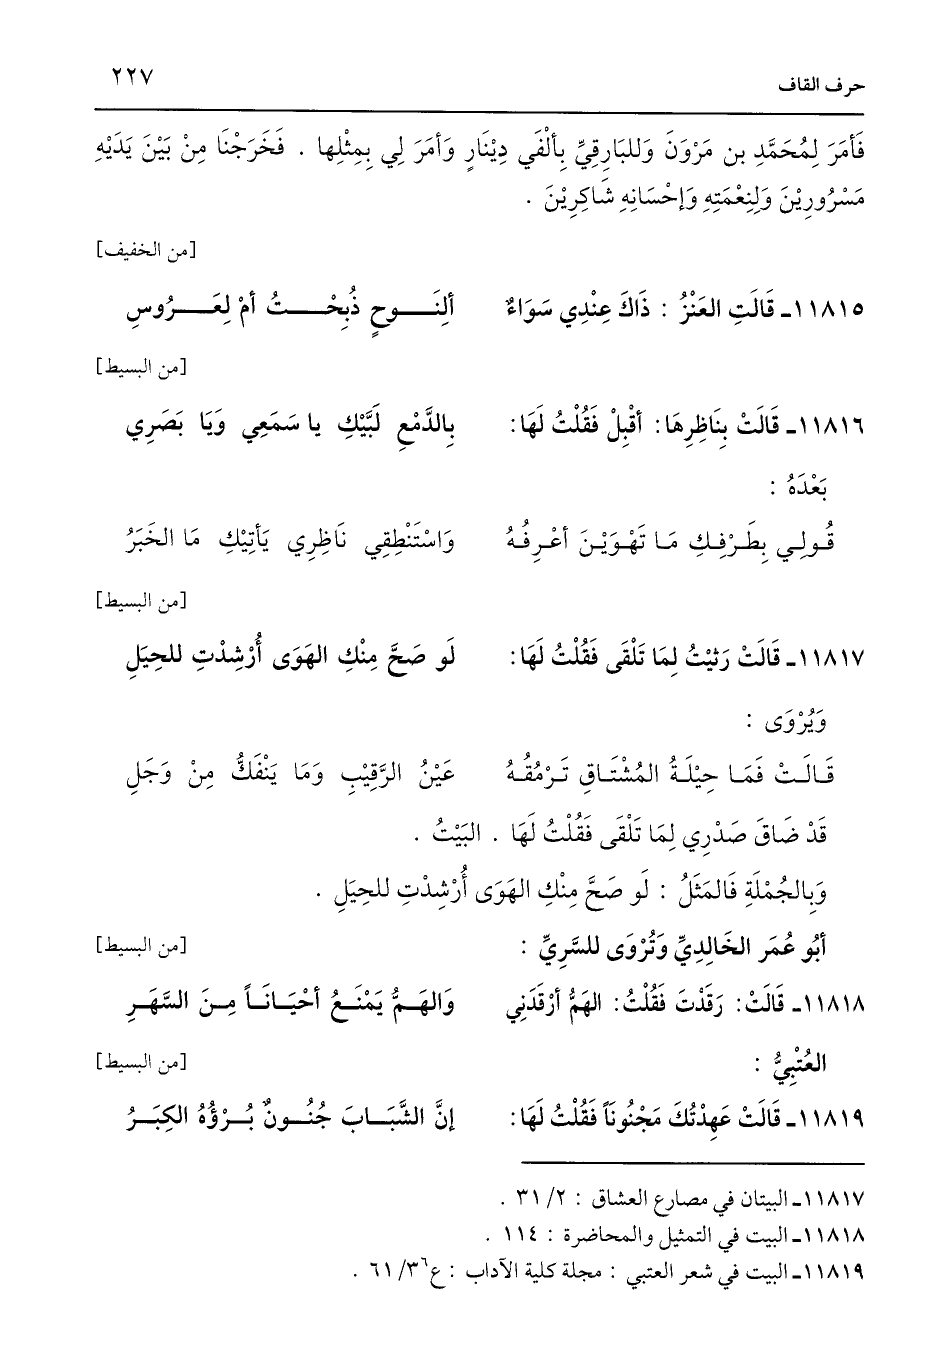 حرف القاف ٢٢٧
فَأمَرَ لِمُحَمَّدِ بن مَرْوَنَ وَللبَارِقِيِّ بِألْفَي دِيْنَارٍ وَأمَرَ لِي بِمِثْلِها . فَخَرَجْنَا مِنْ بَيْنَ يَدَيْهِ
مَسْرُورِيْنَ وَلِنِعْمَتِهِ وَإحْسَانِهِ شَاكِرِيْنَ .
[من الخفيف]
١١٨١٥ـ قَالَتِ العَنْزُ : ذَاكَ عِنْدِي سَوَاءٌ ألِنَوحٍ ذُبِحْتُ أمْ لِعَرُوسِ
[من البسيط]
١١٨١٦ـ قَالَتْ بِنَاظِرِهَا: أقْبِلْ فَقُلْتُ لَهَا: بِالدَّمْعِ لَبَّيْكِ يا سَمَعِي وَيَا بَصَرِي
بَعْدَهُ :
قُولِي بِطَرْفِكِ مَا تَهْوَيْنَ أعْرِفُهُ وَاسْتَنْطِقِي نَاظِرِي يَأتِيْكِ مَا الخَبَرُ
[من البسيط]
١١٨١٧ـ قَالَتْ رَثيْتُ لِمَا تَلْقَى فَقُلْتُ لَهَا: لَو صَحَّ مِنْكِ الهَوَى أُرْشِدْتِ للحِيَلِ
وَيُرْوَى :
قَالَتْ فَمَا حِيْلَةُ المُشْتَاقِ تَرْمُقُهُ عَيْنُ الرَّقِيْبِ وَمَا يَنْفَكُّ مِنْ وَجَلِ
قَدْ ضَاقَ صَدْرِي لِمَا تَلْقَى فَقُلْتُ لَهَا . البَيْتُ .
وَبِالجُمْلَةِ فَالمَثَلُ : لَو صَحَّ مِنْكِ الهَوَى أُرْشِدْتِ للحِيَلِ .
أبُو عُمَر الخَالِدِيِّ وَتُرْوَى للسَّرِيِّ : [من البسيط]
١١٨١٨ـ قَالَتْ: رَقَدْتَ فَقُلْتُ: الهَمُّ أرْقَدَنِي وَالهَمُّ يَمْنَعُ أحْيَانَاً مِنَ السَّهَرِ
العُتْبِيُّ : [من البسيط]
١١٨١٩ـ قَالَتْ عَهِدْتُكَ مَجْنُوناً فَقُلْتُ لَهَا: إنَّ الشَّبَابَ جُنُونٌ بُرْؤُهُ الكِبَرُ
١١٨١٧ـ البيتان في مصارع العشاق : ٢/ ٣١ .
١١٨١٨ـ البيت في التمثيل والمحاضرة : ١١٤ .
١١٨١٩ـ البيت في شعر العتبي : مجلة كلية الآداب : ع٣٦/ ٦١ .